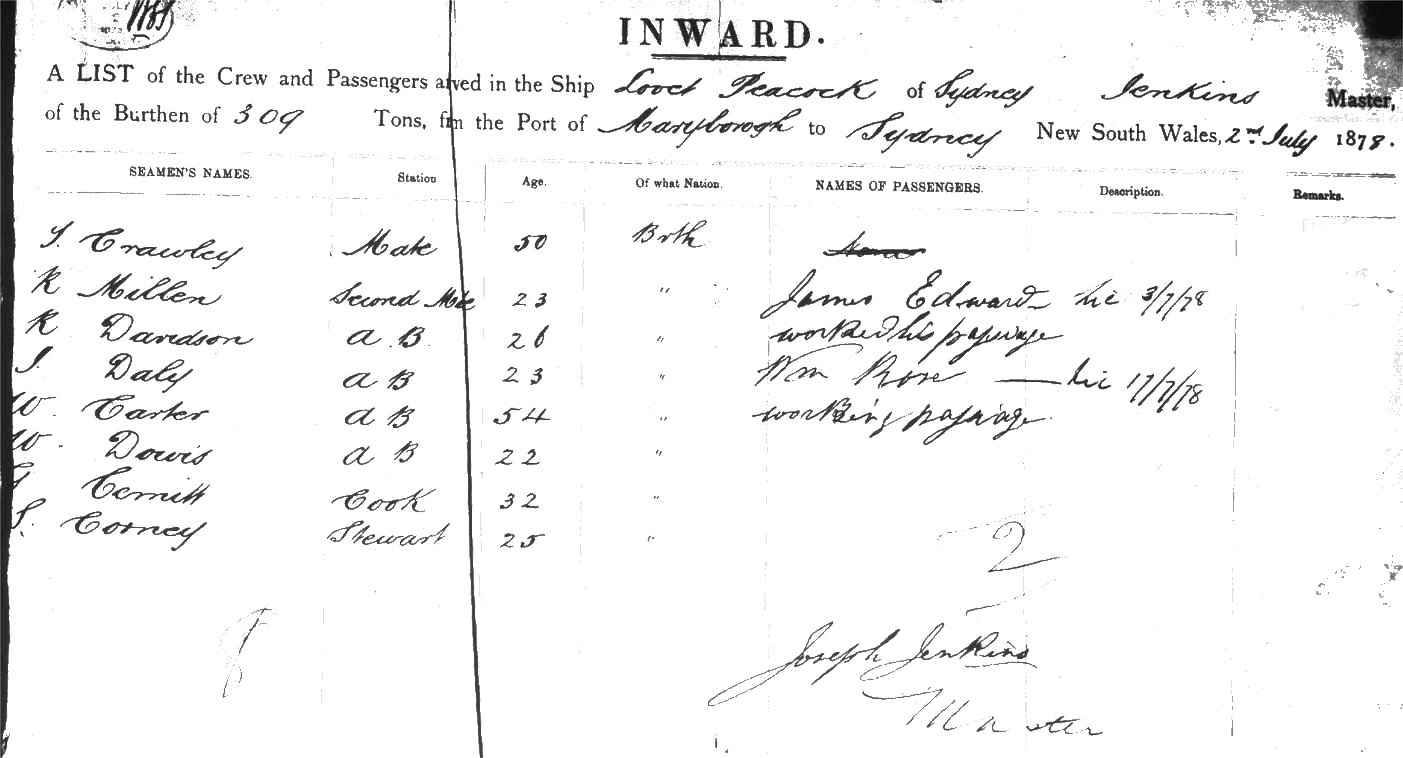 INWARD.
A LIST of the Crew and Passengers arved in the Ship Loock Peacock of Sydney Jenkins Master,
of the Burthen of 309 Tons, fm the Port of Maryborogh to Sydney New South Wales, 2nd July 1878.
SEAMEN'S NAMES. Station Age. Of what Nation. NAMES OF PASSENGERS. Description. Remarks.
Crawley Mate 50 Brth
R Millen Second Mte 23 " James Edward lic 3/7/78
R Davidson A.B. 26 " worked his passage
Daly A B 23 " Wm Rose — lic 17/7/78
W. Carter A B 54 " working passage
W. Dowis A B 22 "
Cook 32 "
Corney Stewart 25 "
2
8
Joseph Jenkins
Master